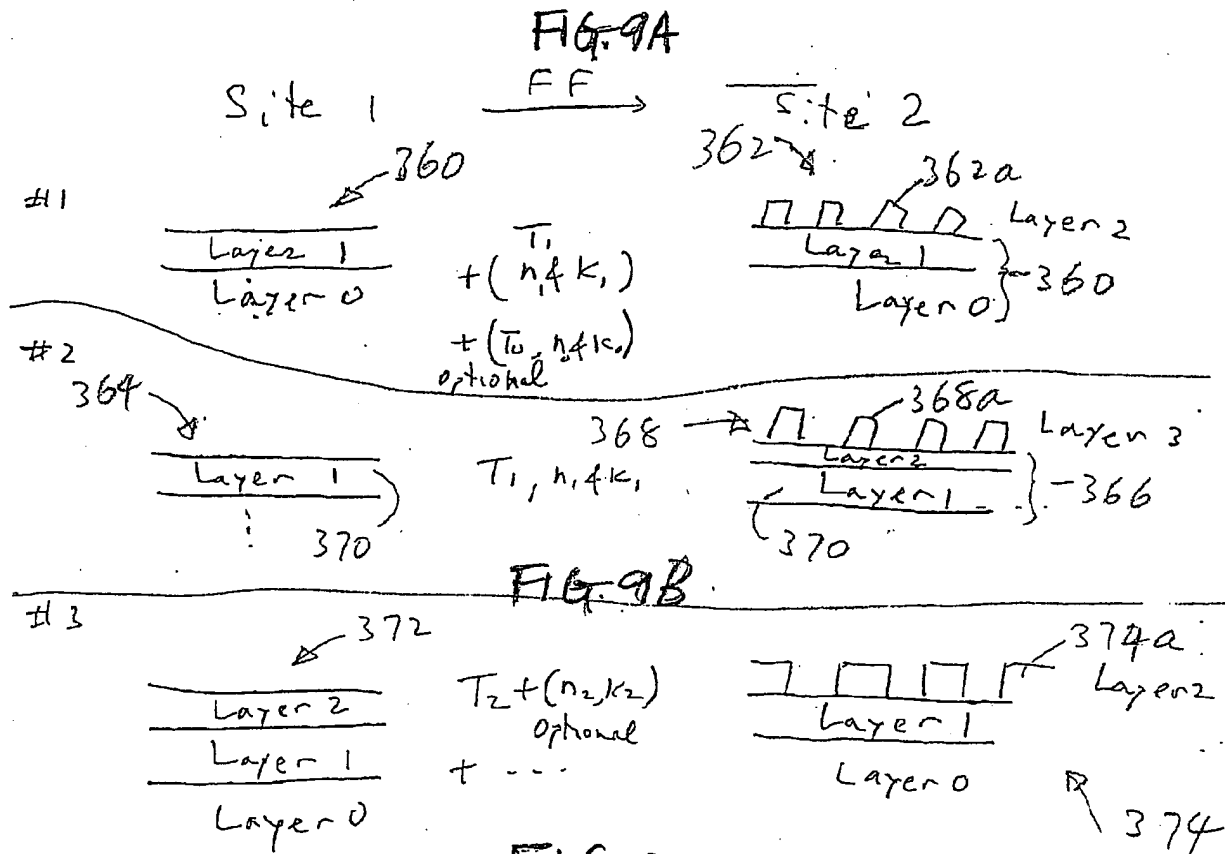 FIG. 9A
Site 1 FF Site 2
360
362
362a
#1
Layer 1
Layer 0
T₁
+ ( n₁ & k₁ )
+ (T₀, n₀ & k₀)
optional
Layer 2
Layer 1
Layer 0
360
#2
364
Layer 1
370
T₁, n₁ & k₁
368
368a
Layer 3
Layer 2
Layer 1
366
370
FIG. 9B
#3
372
Layer 2
Layer 1
Layer 0
T₂ + (n₂, k₂)
optional
+ ---
374a
Layer 2
Layer 1
Layer 0
374